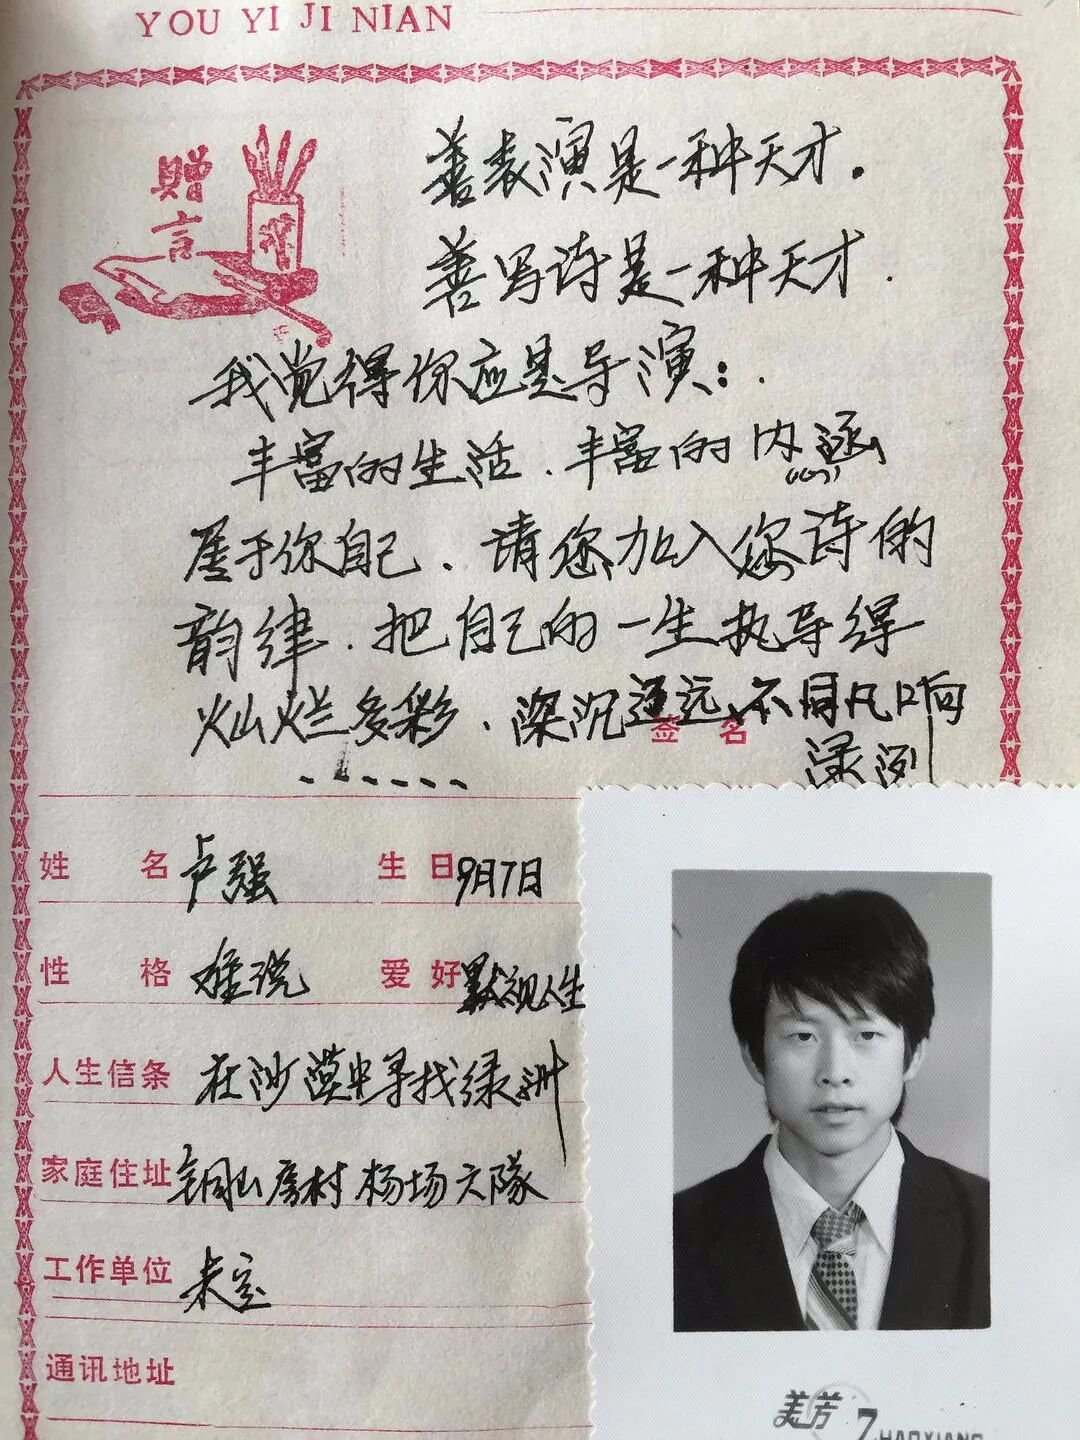 YOU YI JI NIAN
赠言
善表演是一种天才。
善写诗是一种天才.
我觉得你应是导演:.
丰富的生活.丰富的内涵
属于你自己.请您加入您诗的
韵律.把自己的一生执导得
灿烂多彩.深沉遥远、不同凡响
签名
......
姓名 卢强 生日 9月7日
性格 难说 爱好 默视人生
人生信条 在沙漠中寻找绿洲
家庭住址 铜山房村杨场六队
工作单位 未定
通讯地址
美芳 ZHAOXIANG